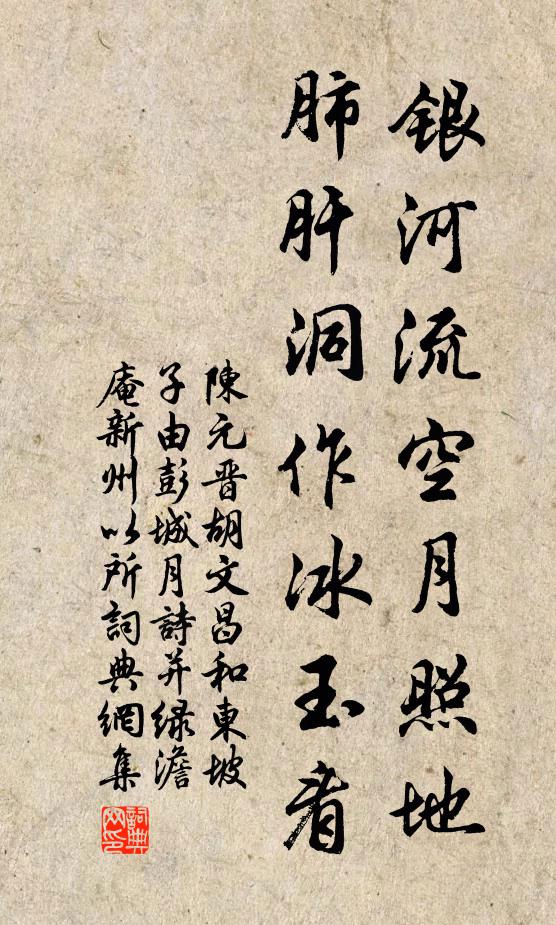 銀河流空月照地
肺肝洞作冰玉看
陳元晋胡文昌和東坡
子由彭城月詩并緑澹
庵新州以所詞典網集
詞典網印